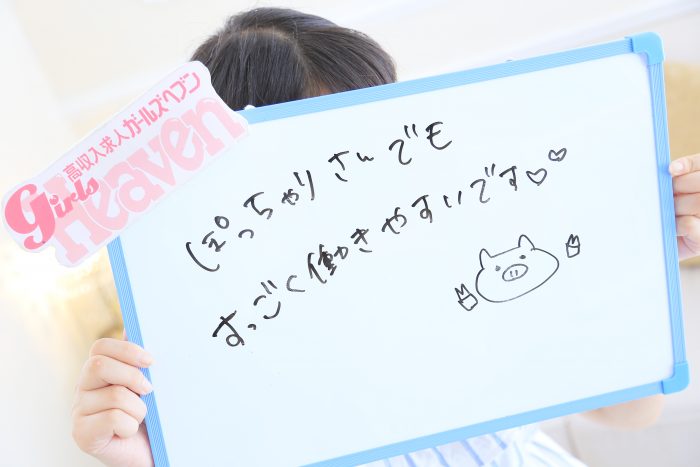 高収入求人ガールズヘブン
Girls
Heaven
ぽっちゃりさんでも
すっごく働きやすいです♡♡